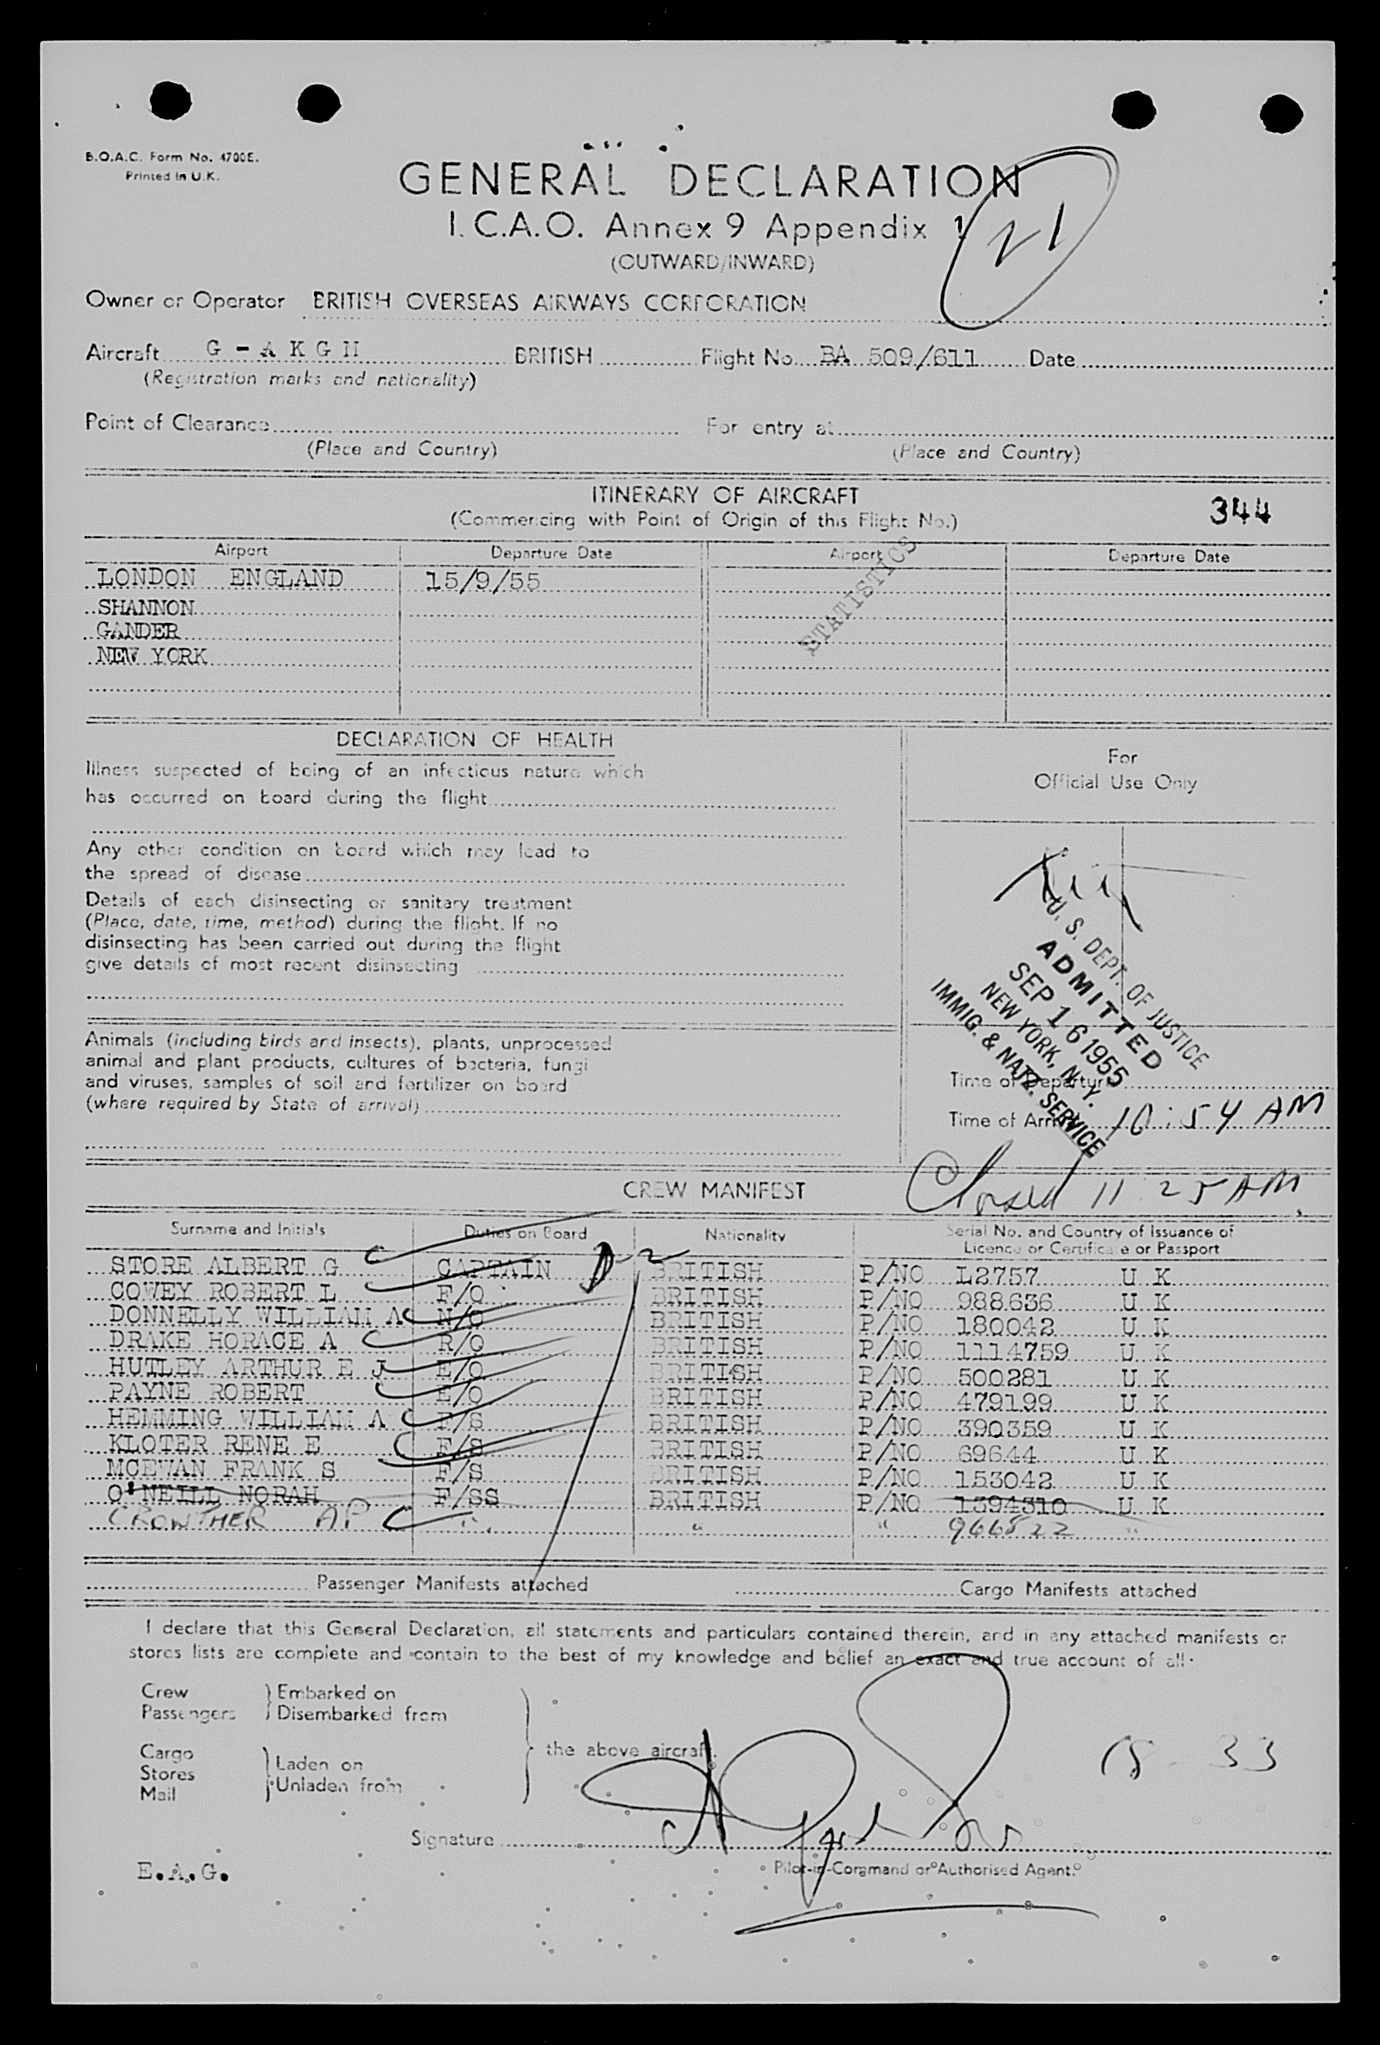 B.O.A.C. Form No. 4700E.
Printed in U.K.
GENERAL DECLARATION
I.C.A.O. Annex 9 Appendix 1
21
(OUTWARD/INWARD)
Owner or Operator BRITISH OVERSEAS AIRWAYS CORPORATION
Aircraft G - A K G H BRITISH Flight No. BA 509/611 Date
(Registration marks and nationality)
Point of Clearance For entry at
(Place and Country) (Place and Country)
ITINERARY OF AIRCRAFT
(Commencing with Point of Origin of this Flight No.)
344
Airport Departure Date Airport Departure Date
LONDON ENGLAND 15/9/55
SHANNON
GANDER
NEW YORK
STATISTICS
DECLARATION OF HEALTH
Illness suspected of being of an infectious nature which
has occurred on board during the flight
Any other condition on board which may lead to
the spread of disease
Details of each disinsecting or sanitary treatment
(Place, date, time, method) during the flight. If no
disinsecting has been carried out during the flight
give details of most recent disinsecting
Animals (including birds and insects), plants, unprocessed
animal and plant products, cultures of bacteria, fungi
and viruses, samples of soil and fertilizer on board
(where required by State of arrival)
For
Official Use Only
U. S. DEPT. OF JUSTICE
ADMITTED
SEP 16 1955
NEW YORK, N. Y.
IMMIG. & NATZ. SERVICE
Time of Departure
Time of Arrival 10:54 AM
Closed 11 25 AM.
CREW MANIFEST
Surname and Initials Duties on Board Nationality Serial No. and Country of Issuance of
Licence or Certificate or Passport
STORE ALBERT G CAPTAIN BRITISH P/NO L2757 U K
COWEY ROBERT L F/O BRITISH P/NO 988636 U K
DONNELLY WILLIAM A N/O BRITISH P/NO 180042 U K
DRAKE HORACE A R/O BRITISH P/NO 1114759 U K
HUTLEY ARTHUR E J E/O BRITISH P/NO 500281 U K
PAYNE ROBERT E/O BRITISH P/NO 479199 U K
HEMMING WILLIAM A F/S BRITISH P/NO 390359 U K
KLOTER RENE E F/S BRITISH P/NO 69644 U K
MCEWAN FRANK S F/S BRITISH P/NO 153042 U K
O'NEILL NORAH F/SS BRITISH P/NO 1394310 U K
CROWTHER AP " " " 966822 "
Passenger Manifests attached Cargo Manifests attached
I declare that this General Declaration, all statements and particulars contained therein, and in any attached manifests or
stores lists are complete and contain to the best of my knowledge and belief an exact and true account of all
Crew } Embarked on
Passengers } Disembarked from
the above aircraft.
Cargo
Stores } Laden on
Mail } Unladen from
18 - 33
Signature
Pilot-in-Command or Authorised Agent.
E.A.G.